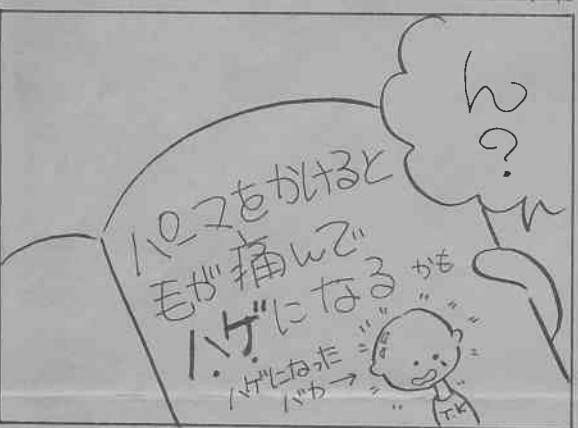 ん?
パーマをかけると
毛が痛んで
ハゲになる かも
ハゲになった
バカ→
T.K